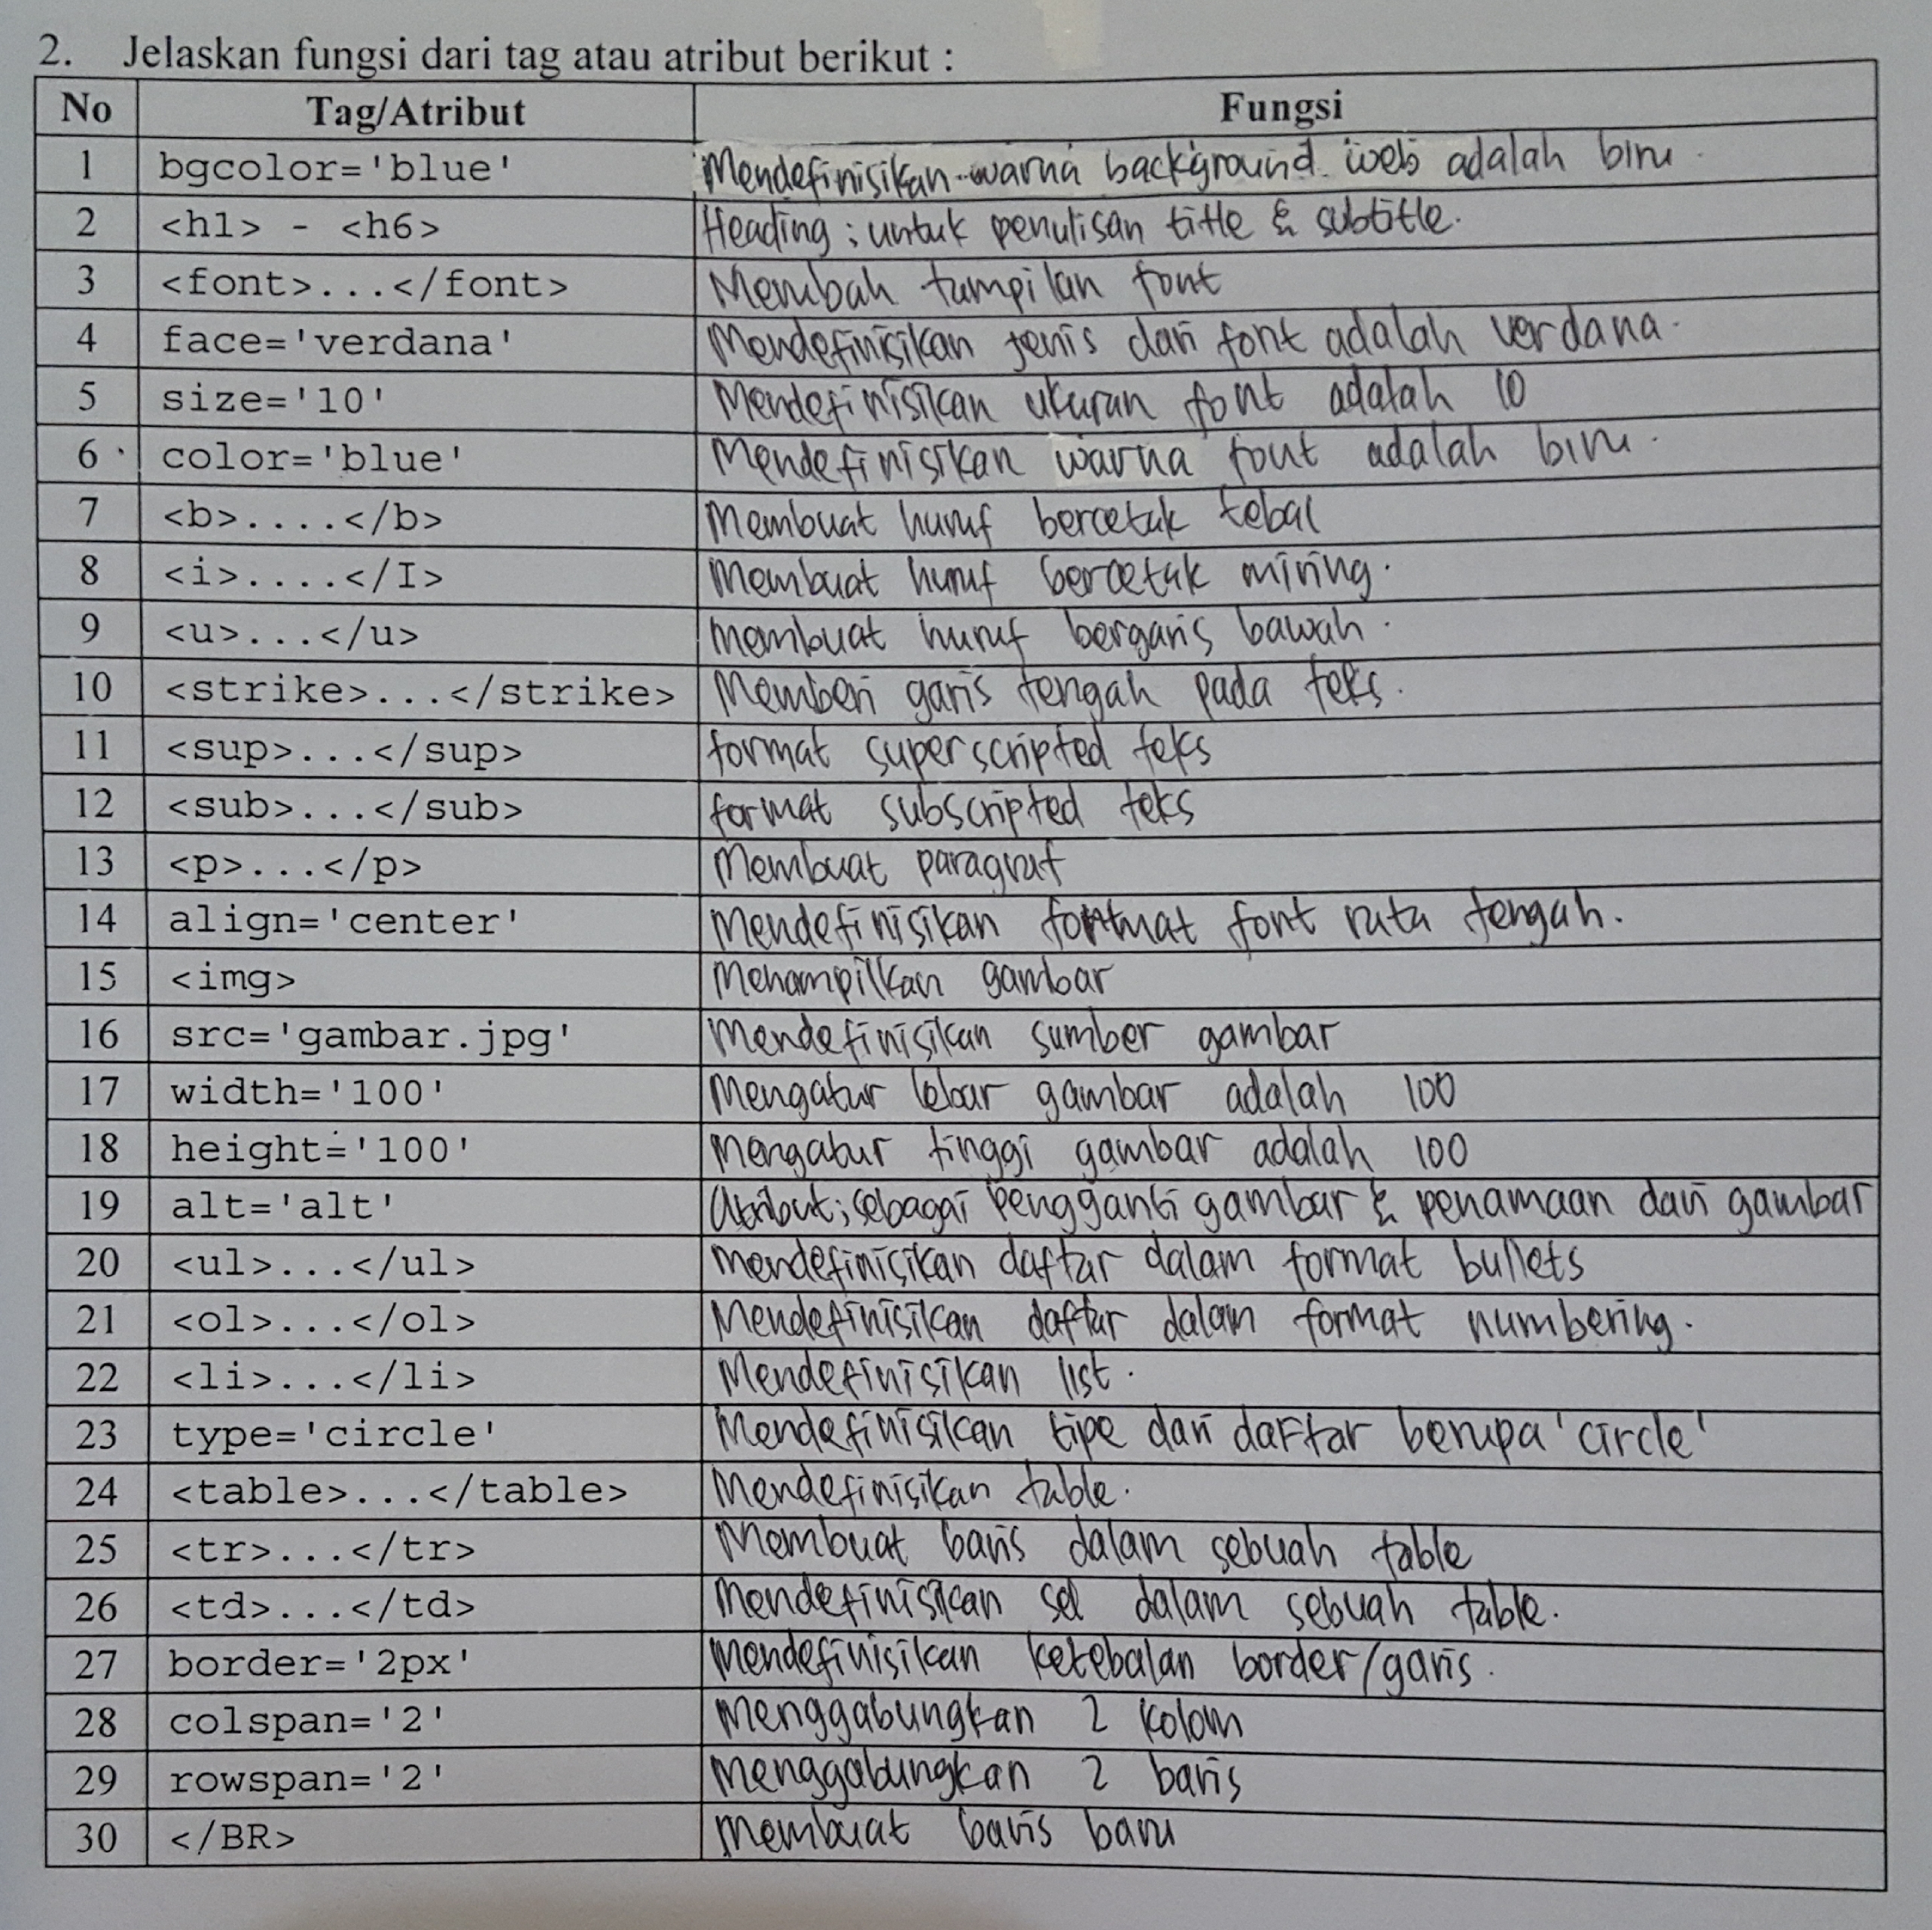 2. Jelaskan fungsi dari tag atau atribut berikut :
No Tag/Atribut Fungsi
1 bgcolor='blue' Mendefinisikan warna background web adalah biru
2 <h1> - <h6> Heading ; untuk penulisan title & subtitle.
3 <font>...</font> Merubah tampilan font
4 face='verdana' Mendefinisikan jenis dari font adalah verdana.
5 size='10' Mendefinisikan ukuran font adalah 10
6 color='blue' Mendefinisikan warna font adalah biru.
7 <b>....</b> Membuat huruf bercetak tebal
8 <i>....</I> Membuat huruf bercetak miring.
9 <u>...</u> Membuat huruf bergaris bawah.
10 <strike>...</strike> Memberi garis tengah pada teks.
11 <sup>...</sup> format superscripted teks
12 <sub>...</sub> format subscripted teks
13 <p>...</p> Membuat paragraf
14 align='center' Mendefinisikan format font rata tengah.
15 <img> Menampilkan gambar
16 src='gambar.jpg' Mendefinisikan sumber gambar
17 width='100' Mengatur lebar gambar adalah 100
18 height='100' Mengatur tinggi gambar adalah 100
19 alt='alt' Atribut; sebagai pengganti gambar & penamaan dari gambar
20 <ul>...</ul> Mendefinisikan daftar dalam format bullets
21 <ol>...</ol> Mendefinisikan daftar dalam format numbering.
22 <li>...</li> Mendefinisikan list.
23 type='circle' Mendefinisikan tipe dari daftar berupa 'circle'
24 <table>...</table> Mendefinisikan table.
25 <tr>...</tr> Membuat baris dalam sebuah table
26 <td>...</td> Mendefinisikan sel dalam sebuah table.
27 border='2px' Mendefinisikan ketebalan border/garis.
28 colspan='2' Menggabungkan 2 kolom
29 rowspan='2' Menggabungkan 2 baris
30 </BR> Membuat baris baru